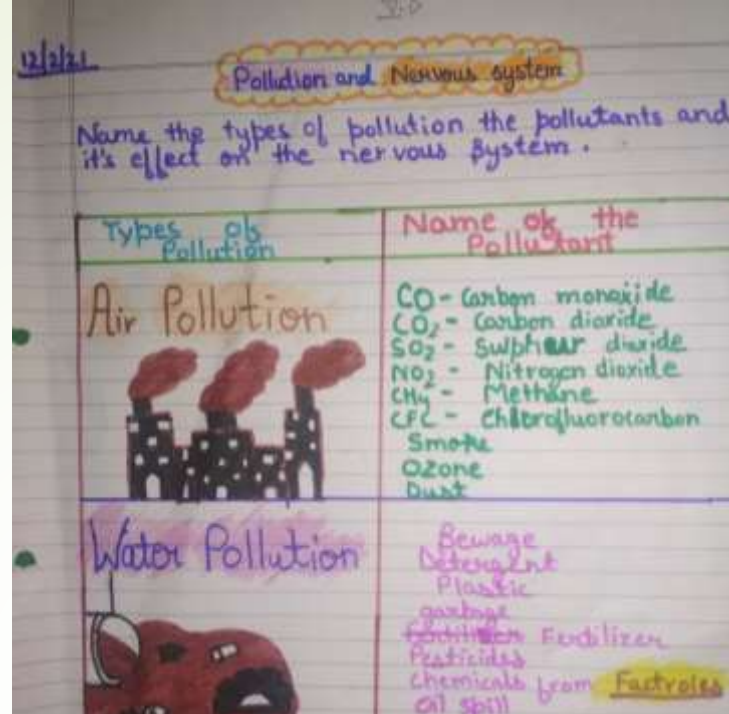 V.D
12/2/21
Pollution and Nervous system
Name the types of pollution the pollutants and
it's effect on the nervous system.
Types of
Pollution
Name of the
Pollutant
Air Pollution
CO - Carbon monoxide
CO₂ - Carbon dioxide
SO₂ - Sulpheur dioxide
NO₂ - Nitrogen dioxide
CH₄ - Methane
CFC - Chlorofluorocarbon
Smoke
Ozone
Dust
Water Pollution
Sewage
Detergent
Plastic
garbage
Fertilizer
Pesticides
Chemicals from Factroies
Oil spill